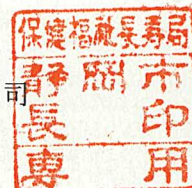 保健福祉長寿局
静岡市
司
長印
専用